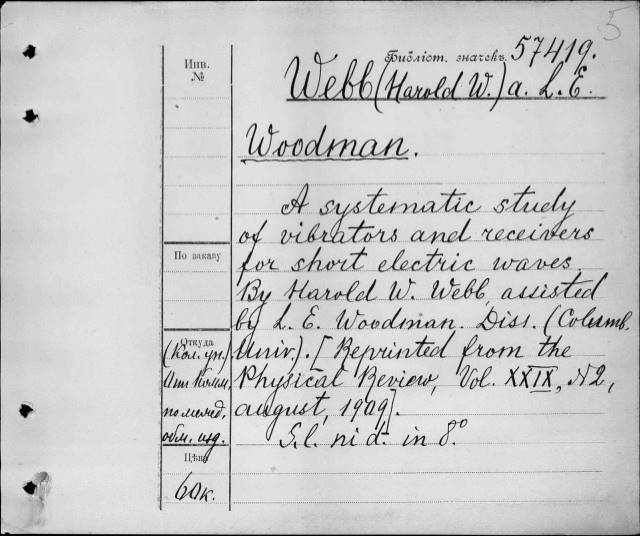 5
Библіот. значекъ. 57419.
Инв.
№
Webb (Harold W.) a. L. E.
Woodman.
A systematic study
of vibrators and receivers
for short electric waves
By Harold W. Webb, assisted
by L. E. Woodman. Diss. (Columb.
Univ.). [Reprinted from the
Physical Review, Vol. XXIX, N2,
august, 1909].
S. l. ni d. in 8°
По заказу
Откуда
(Кол. ун.)
по межд.
обм. изд.
Цѣна
60 к.